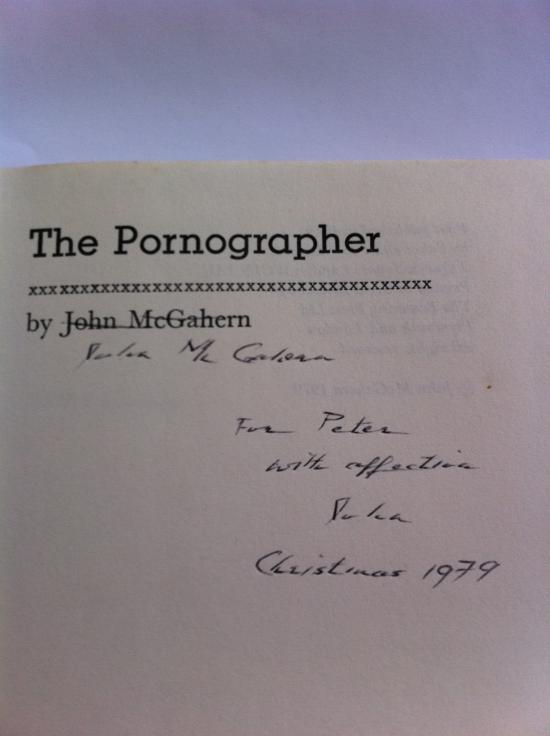 The Pornographer
xxxxxxxxxxxxxxxxxxxxxxxxxxxxxxxxxxxxxxxx
by John McGahern
John Mc Gahern
For Peter
with affection
John
Christmas 1979